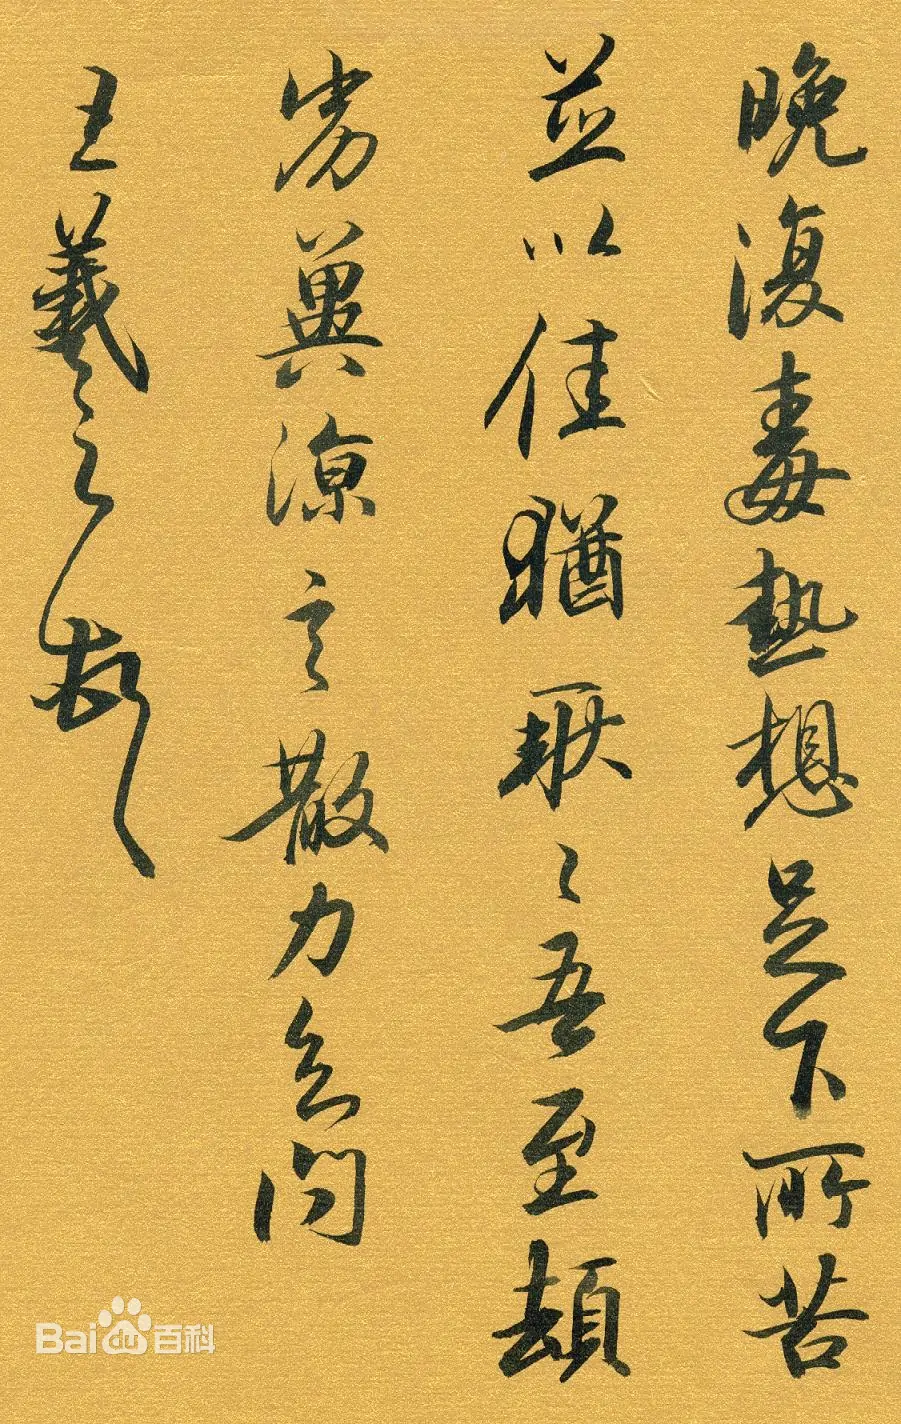 晚復毒熱想足下所苦
並以佳猶耿〻吾至頓
劣冀涼言散力知問
王羲之頓首
Bai du 百科